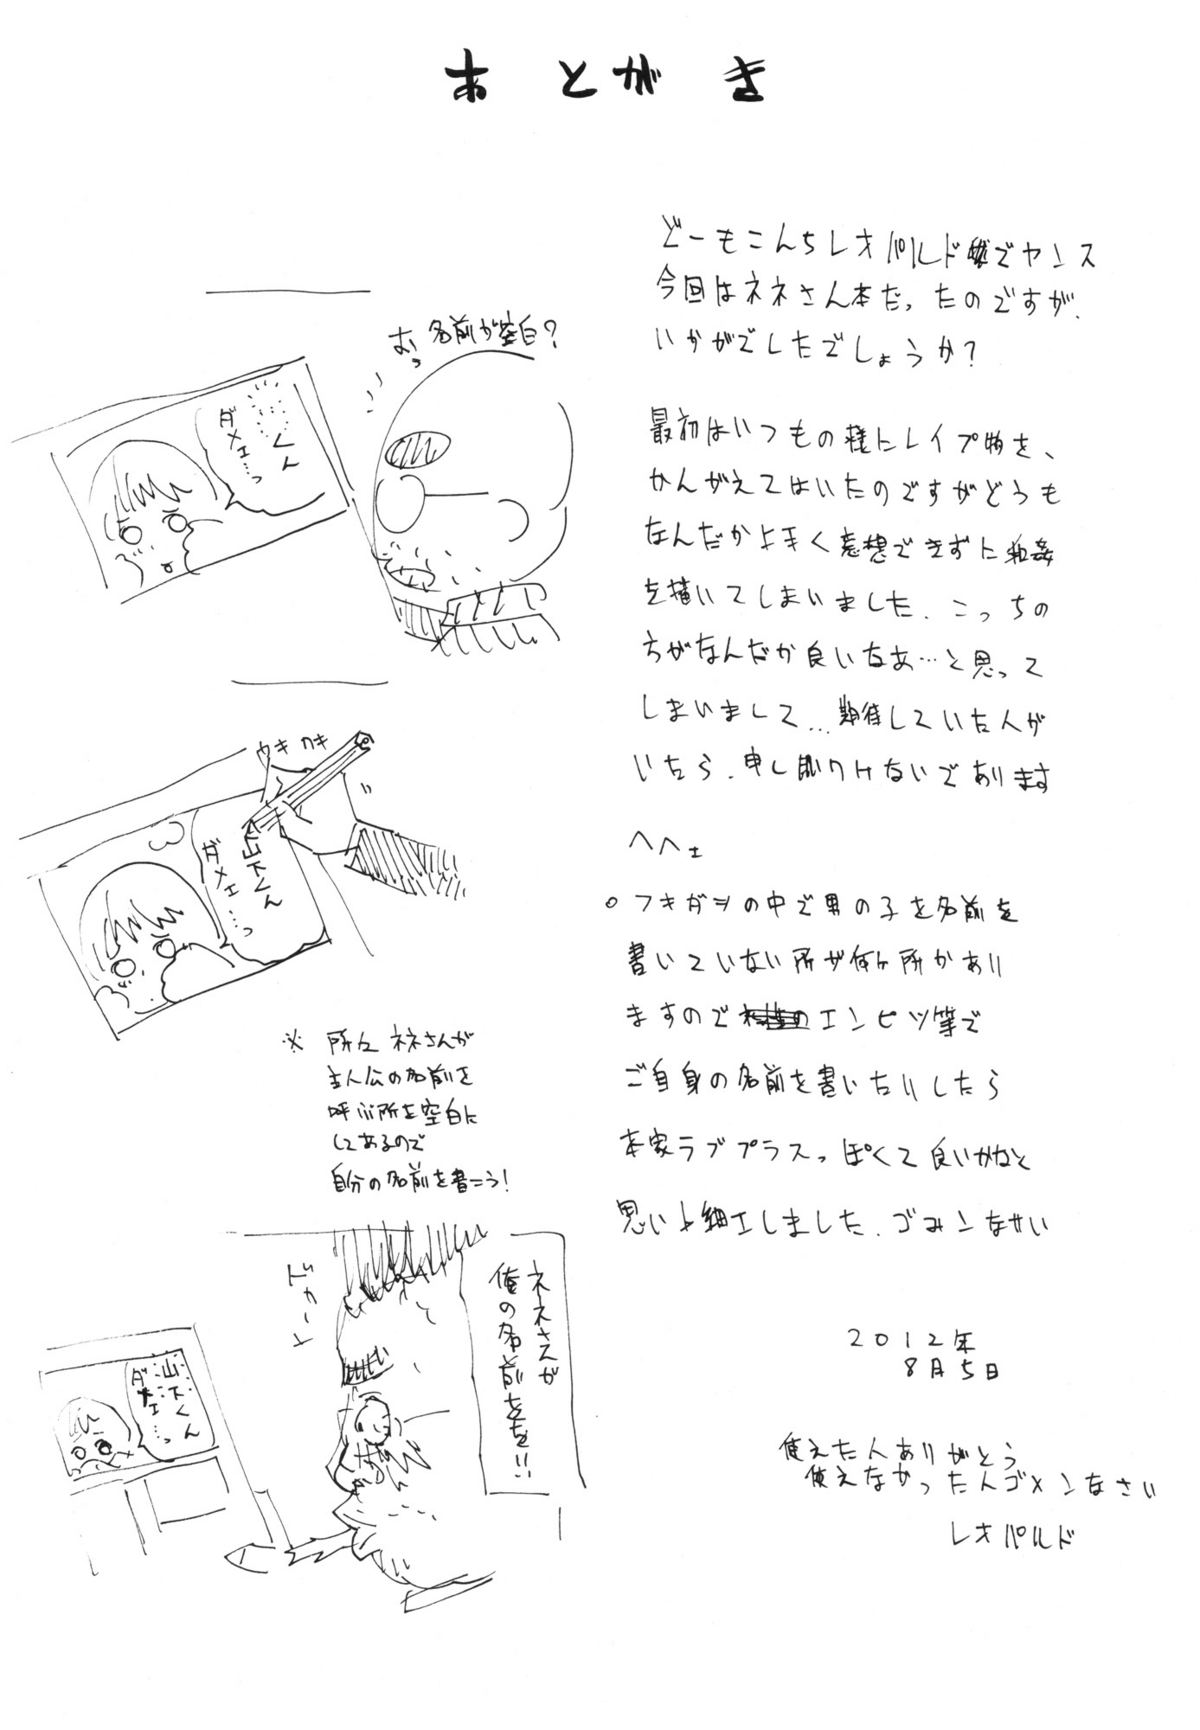 あとがき
どーもこんちレオパルドでヤンス
今回はネネさん本だったのですが、
いかがでしたでしょうか？
最初はいつもの様にレイプ物を、
かんがえてはいたのですがどうも
なんだか上手く妄想できずに和姦
を描いてしまいました、こっちの
方がなんだか良いなあ…と思って
しまいまして…期待していた人が
いたら、申し訳けないであります
へへェ
○フキダシの中で男の子を名前を
書いていない所が何ヶ所かあり
ますのでエンピツ等で
ご自身の名前を書いたりしたら
本家ラブプラスっぽくて良いかなと
思い小細工しました、ゴみンなせい
2012年
8月5日
使えた人ありがとう
使えなかった人ゴメンなさい
レオパルド
おっ
名前が空白？
くん
ダメェ…っ
カキカキ
山下くん
ダメェ…っ
※所々ネネさんが
主人公の名前を
呼ぶ所を空白に
してあるので
自分の名前を書こう！
ネネさんが
俺の名前をを!!
山下くん
ダメェ…っ